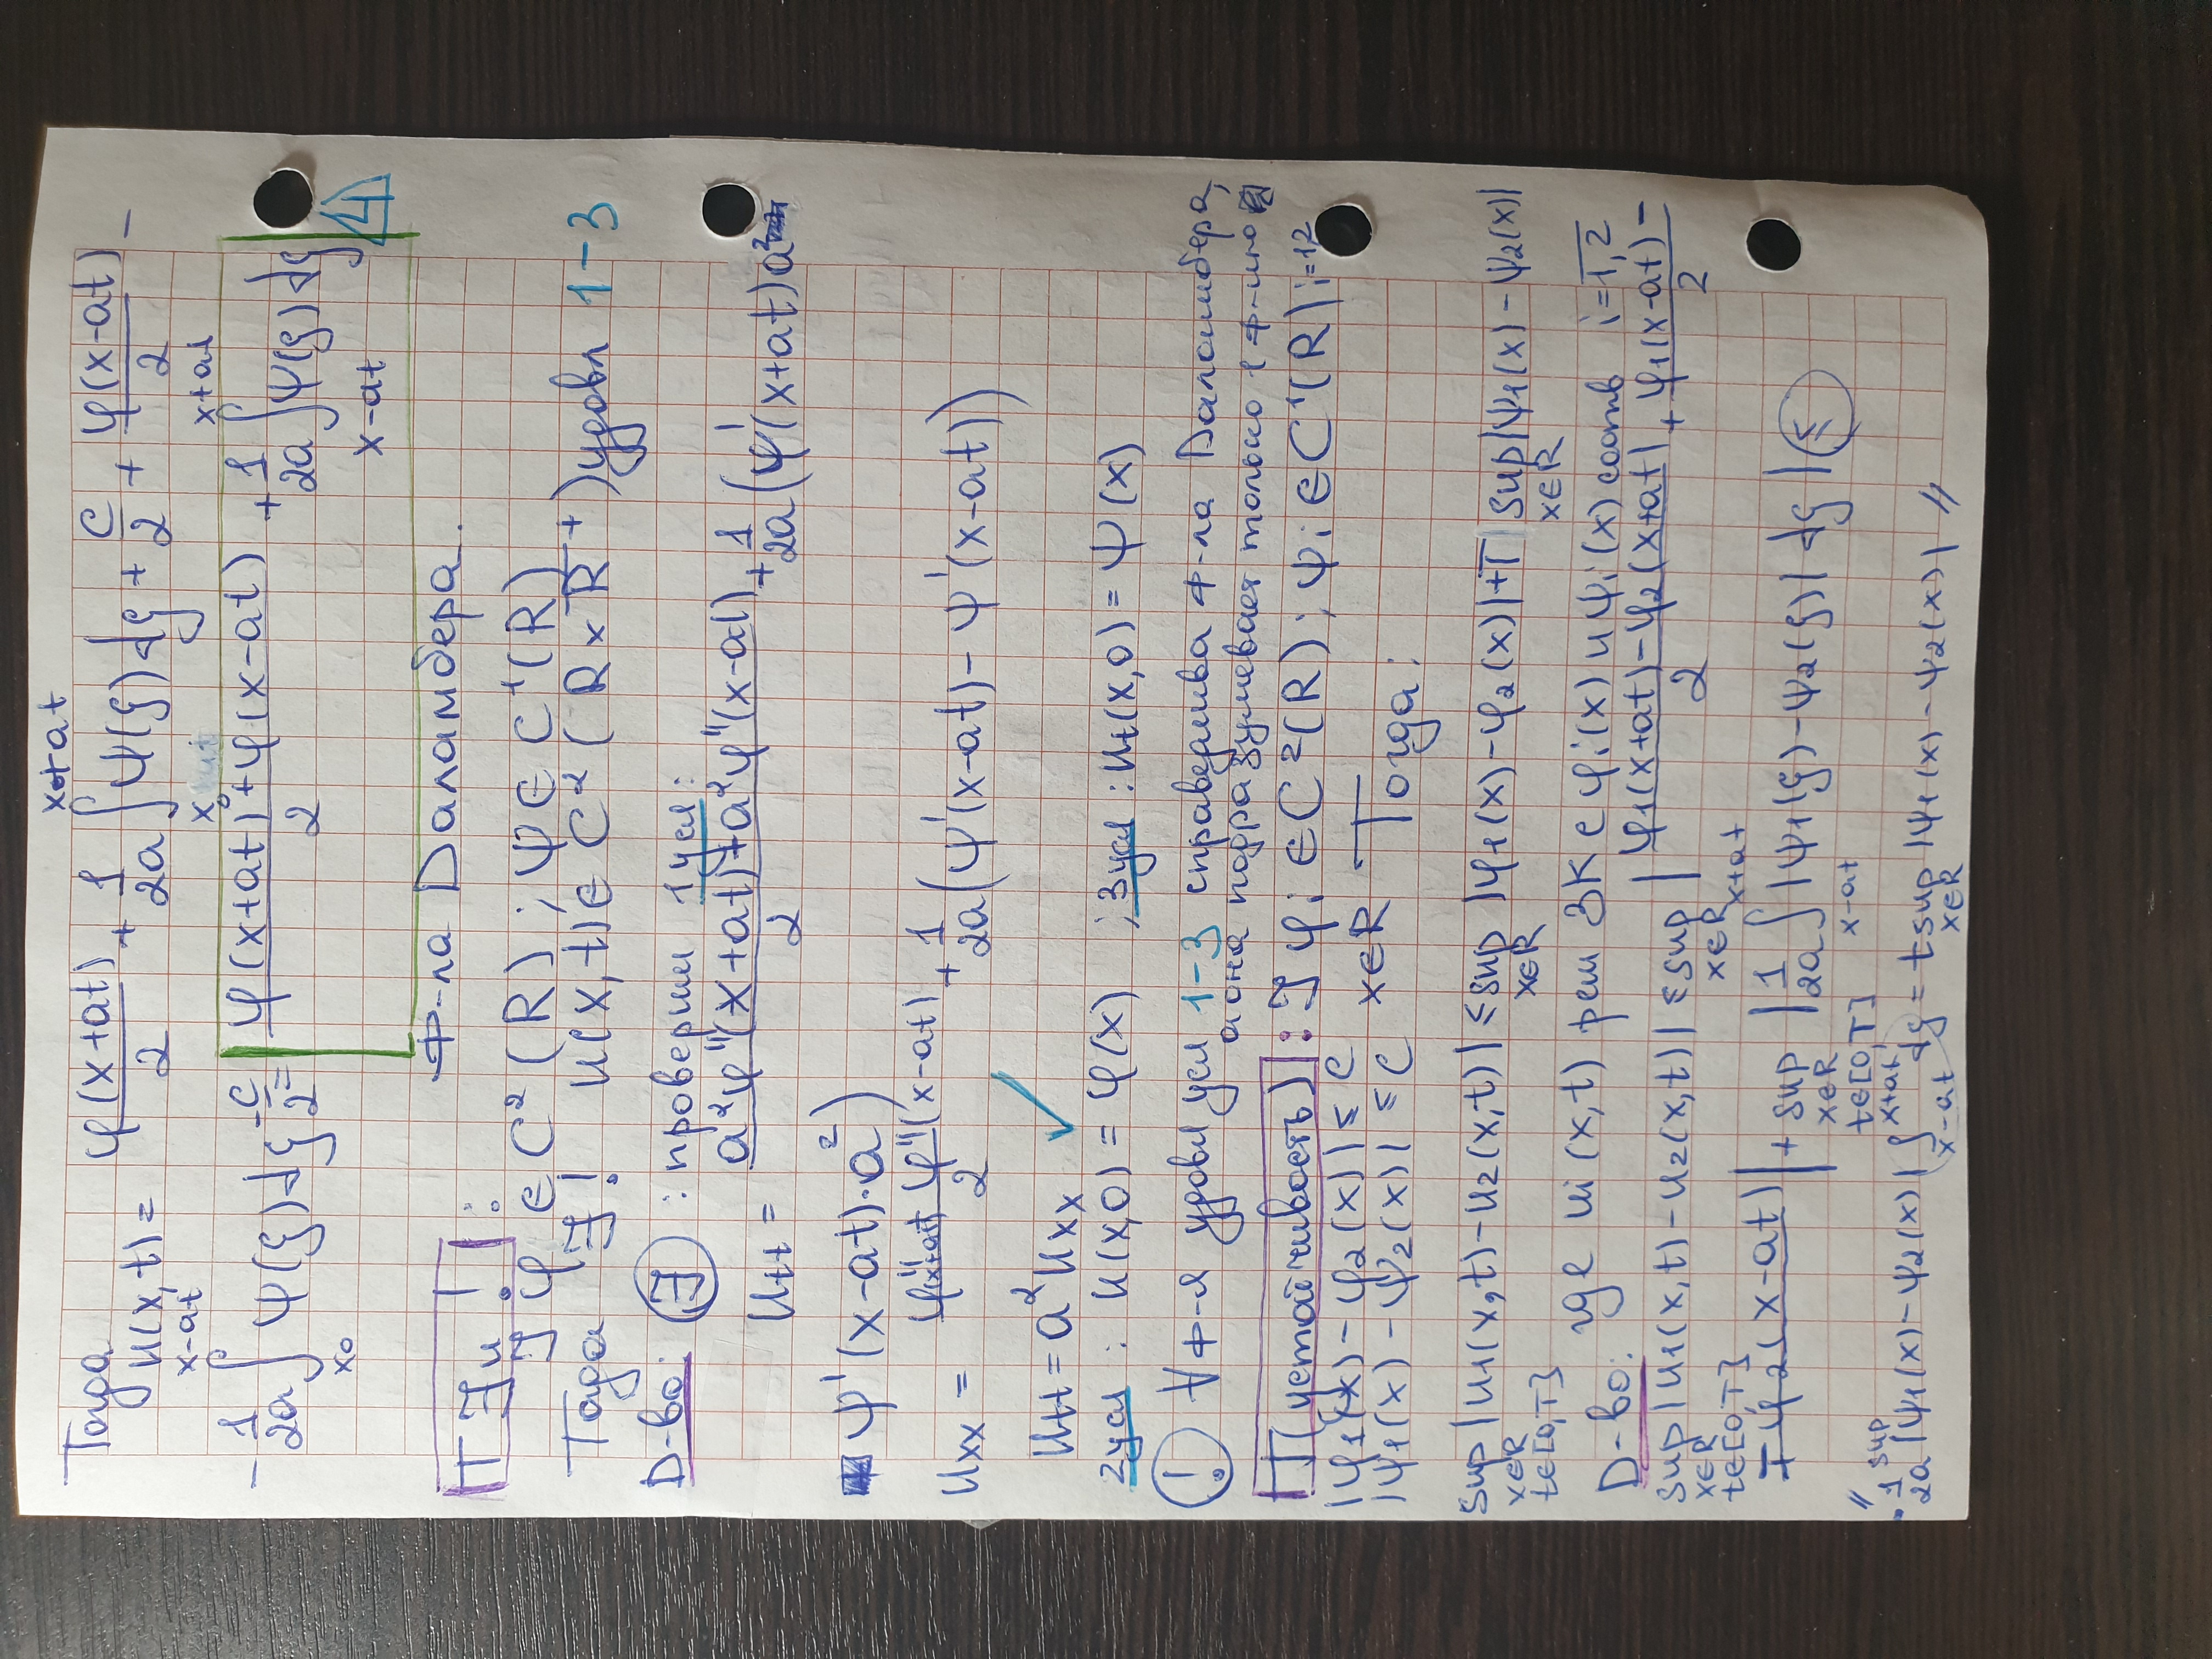 Тогда
u(x,t) = φ(x+at)/2 + 1/2a ∫_{x₀}^{x+at} ψ(ξ)dξ + C/2 + φ(x-at)/2 -
- 1/2a ∫_{x₀}^{x-at} ψ(ξ)dξ - C/2 = φ(x+at)+φ(x-at)/2 + 1/2a ∫_{x-at}^{x+at} ψ(ξ)dξ 4
ф-ла Даламбера.
Т ∃ и ! :
] φ ∈ C²(R) ; ψ ∈ C¹(R)
Тогда ∃! u(x,t) ∈ C²(R×R̅₊) удовл 1-3
D-во: ∃ : проверим 1 усл:
u_tt = a²φ''(x+at)+a²φ''(x-at)/2 + 1/2a(ψ'(x+at)a² -
ψ'(x-at)·a²)
u_xx = φ''(x+at) φ''(x-at)/2 + 1/2a(ψ'(x-at) - ψ'(x-at))
u_tt = a² u_xx ✓
2 усл : u(x,0) = φ(x) ; 3 усл : u_t(x,0) = ψ(x)
! ∀ ф-я удовл усл 1-3 справедлива ф-ла Даламбера,
а она подразумевает только 1 ф-лию
Т (устойчивость) : ] φi ∈ C²(R) ; ψi ∈ C¹(R) i=1,2
|φ₁(x) - φ₂(x)| ≤ C
|ψ₁(x) - ψ₂(x)| ≤ C x∈R Тогда:
sup_{x∈R t∈[0,T]} |u₁(x,t) - u₂(x,t)| ≤ sup_{x∈R} |φ₁(x) - φ₂(x)| + T sup_{x∈R} |ψ₁(x) - ψ₂(x)|
где ui(x,t) реш ЗК с φi(x) и ψi(x) соотв i=1,2
D-во:
sup_{x∈R t∈[0,T]} |u₁(x,t) - u₂(x,t)| ≤ sup_{x∈R} | φ₁(x+at) - φ₂(x+at)/2 + φ₁(x-at) -/2
+ φ₂(x-at) | + sup_{x∈R t∈[0,T]} | 1/2a ∫_{x-at}^{x+at} |ψ₁(ξ) - ψ₂(ξ)| dξ | ≤
" 1/2a sup |ψ₁(x) - ψ₂(x)| ∫_{x-at}^{x+at} dξ = t sup_{x∈R} |ψ₁(x) - ψ₂(x)| "